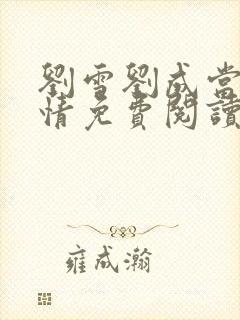 劉雪劉成當
情免費閱讀
雍成瀚